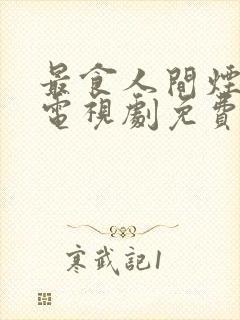 最食人間煙
電視劇免費
寒武記1